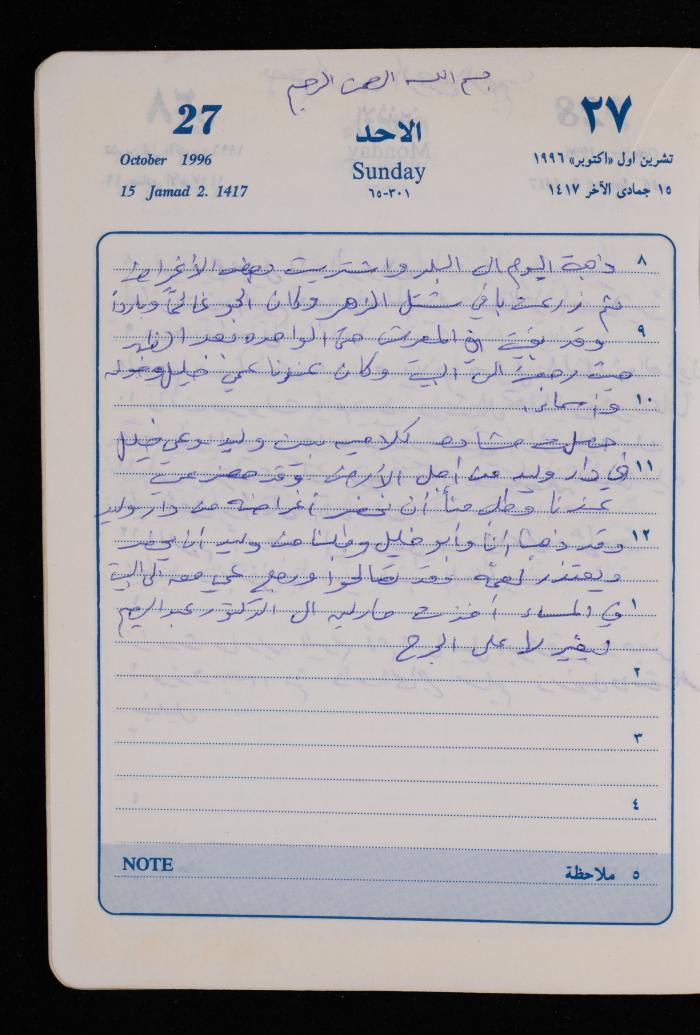 بسم الله الرحمن الرحيم
27
٢٧
الاحد
October 1996
Sunday
تشرين اول «اكتوبر» ١٩٩٦
15 Jamad 2. 1417
٣٠١-٦٥
١٥ جمادى الآخر ١٤١٧
٨ ذهبة اليوم الى البلد واشتريت بعض الأغراض
ثم زرعت باقي شتل الزهر وكان الجو غائماً وبارداً
٩ وقد بقيت في المعرش حتى الواحده بعد الظهر
حيث رجعت الى البيت وكان عندنا عمي خليل وخوله
١٠ وأسماء.
حصلت مشاده كلاميه بين وليد وعمي خليل
١١ في دار وليد من أجل الأرض وقد حضر عمي
عندنا وطلب منا أن نحضر أغراضه من دار وليد
١٢ وقد ذهبنا أنا وأبو خليل وطلبنا من وليد ان يحضر
ويعتذر لعمه فقد تصالحوا ورجع عمي معه الى البيت
١ في المساء أخذت ماريه الى الدكتور عبد الرحيم
ليغير لا على الجرح
٢
٣
٤
NOTE
٥ ملاحظة